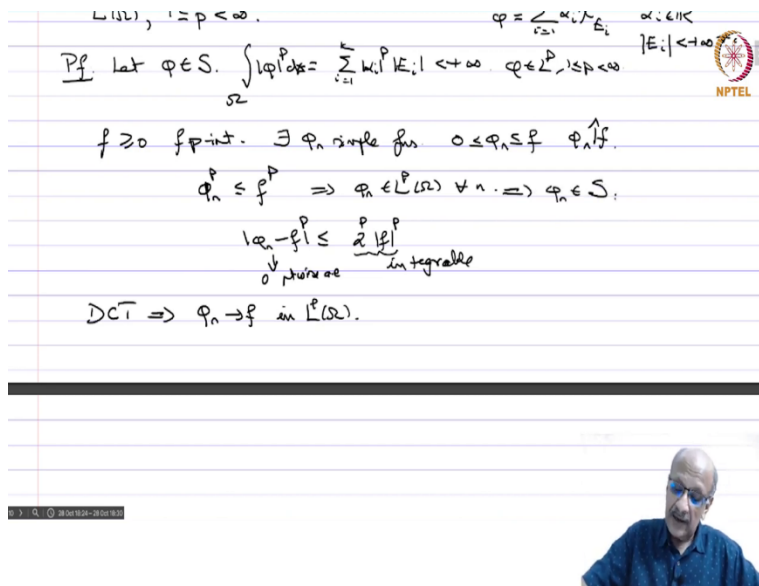 L^p(Ω), 1 ≤ p < ∞.
φ = Σ_{i=1}^{k} α_i χ_{E_i} α_i ∈ ℝ
|E_i| < +∞
Pf. Let φ ∈ S. ∫_Ω |φ|^p dx = Σ_{i=1}^{k} |α_i|^p |E_i| < +∞. φ ∈ L^p, 1≤p<∞
NPTEL
f ≥ 0 f p-int. ∃ φ_n simple fns 0 ≤ φ_n ≤ f φ_n ↑ f.
φ_n^p ≤ f^p ⇒ φ_n ∈ L^p(Ω) ∀ n. ⇒ φ_n ∈ S.
|φ_n - f|^p ≤ 2^p |f|^p
↓ integrable
0 ptwise ae
DCT ⇒ φ_n → f in L^p(Ω).
28 Oct 18:24 – 28 Oct 18:30